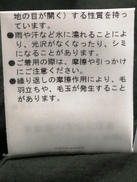 地の目が開く)する性質を持っ
ています。
●雨や汗など水に濡れることによ
り、光沢がなくなったり、シミ
になることがあります。
●ご着用の際は、摩擦や引っかけ
にご注意ください。
●繰り返しの摩擦作用により、毛
羽立ちや、毛玉が発生すること
があります。